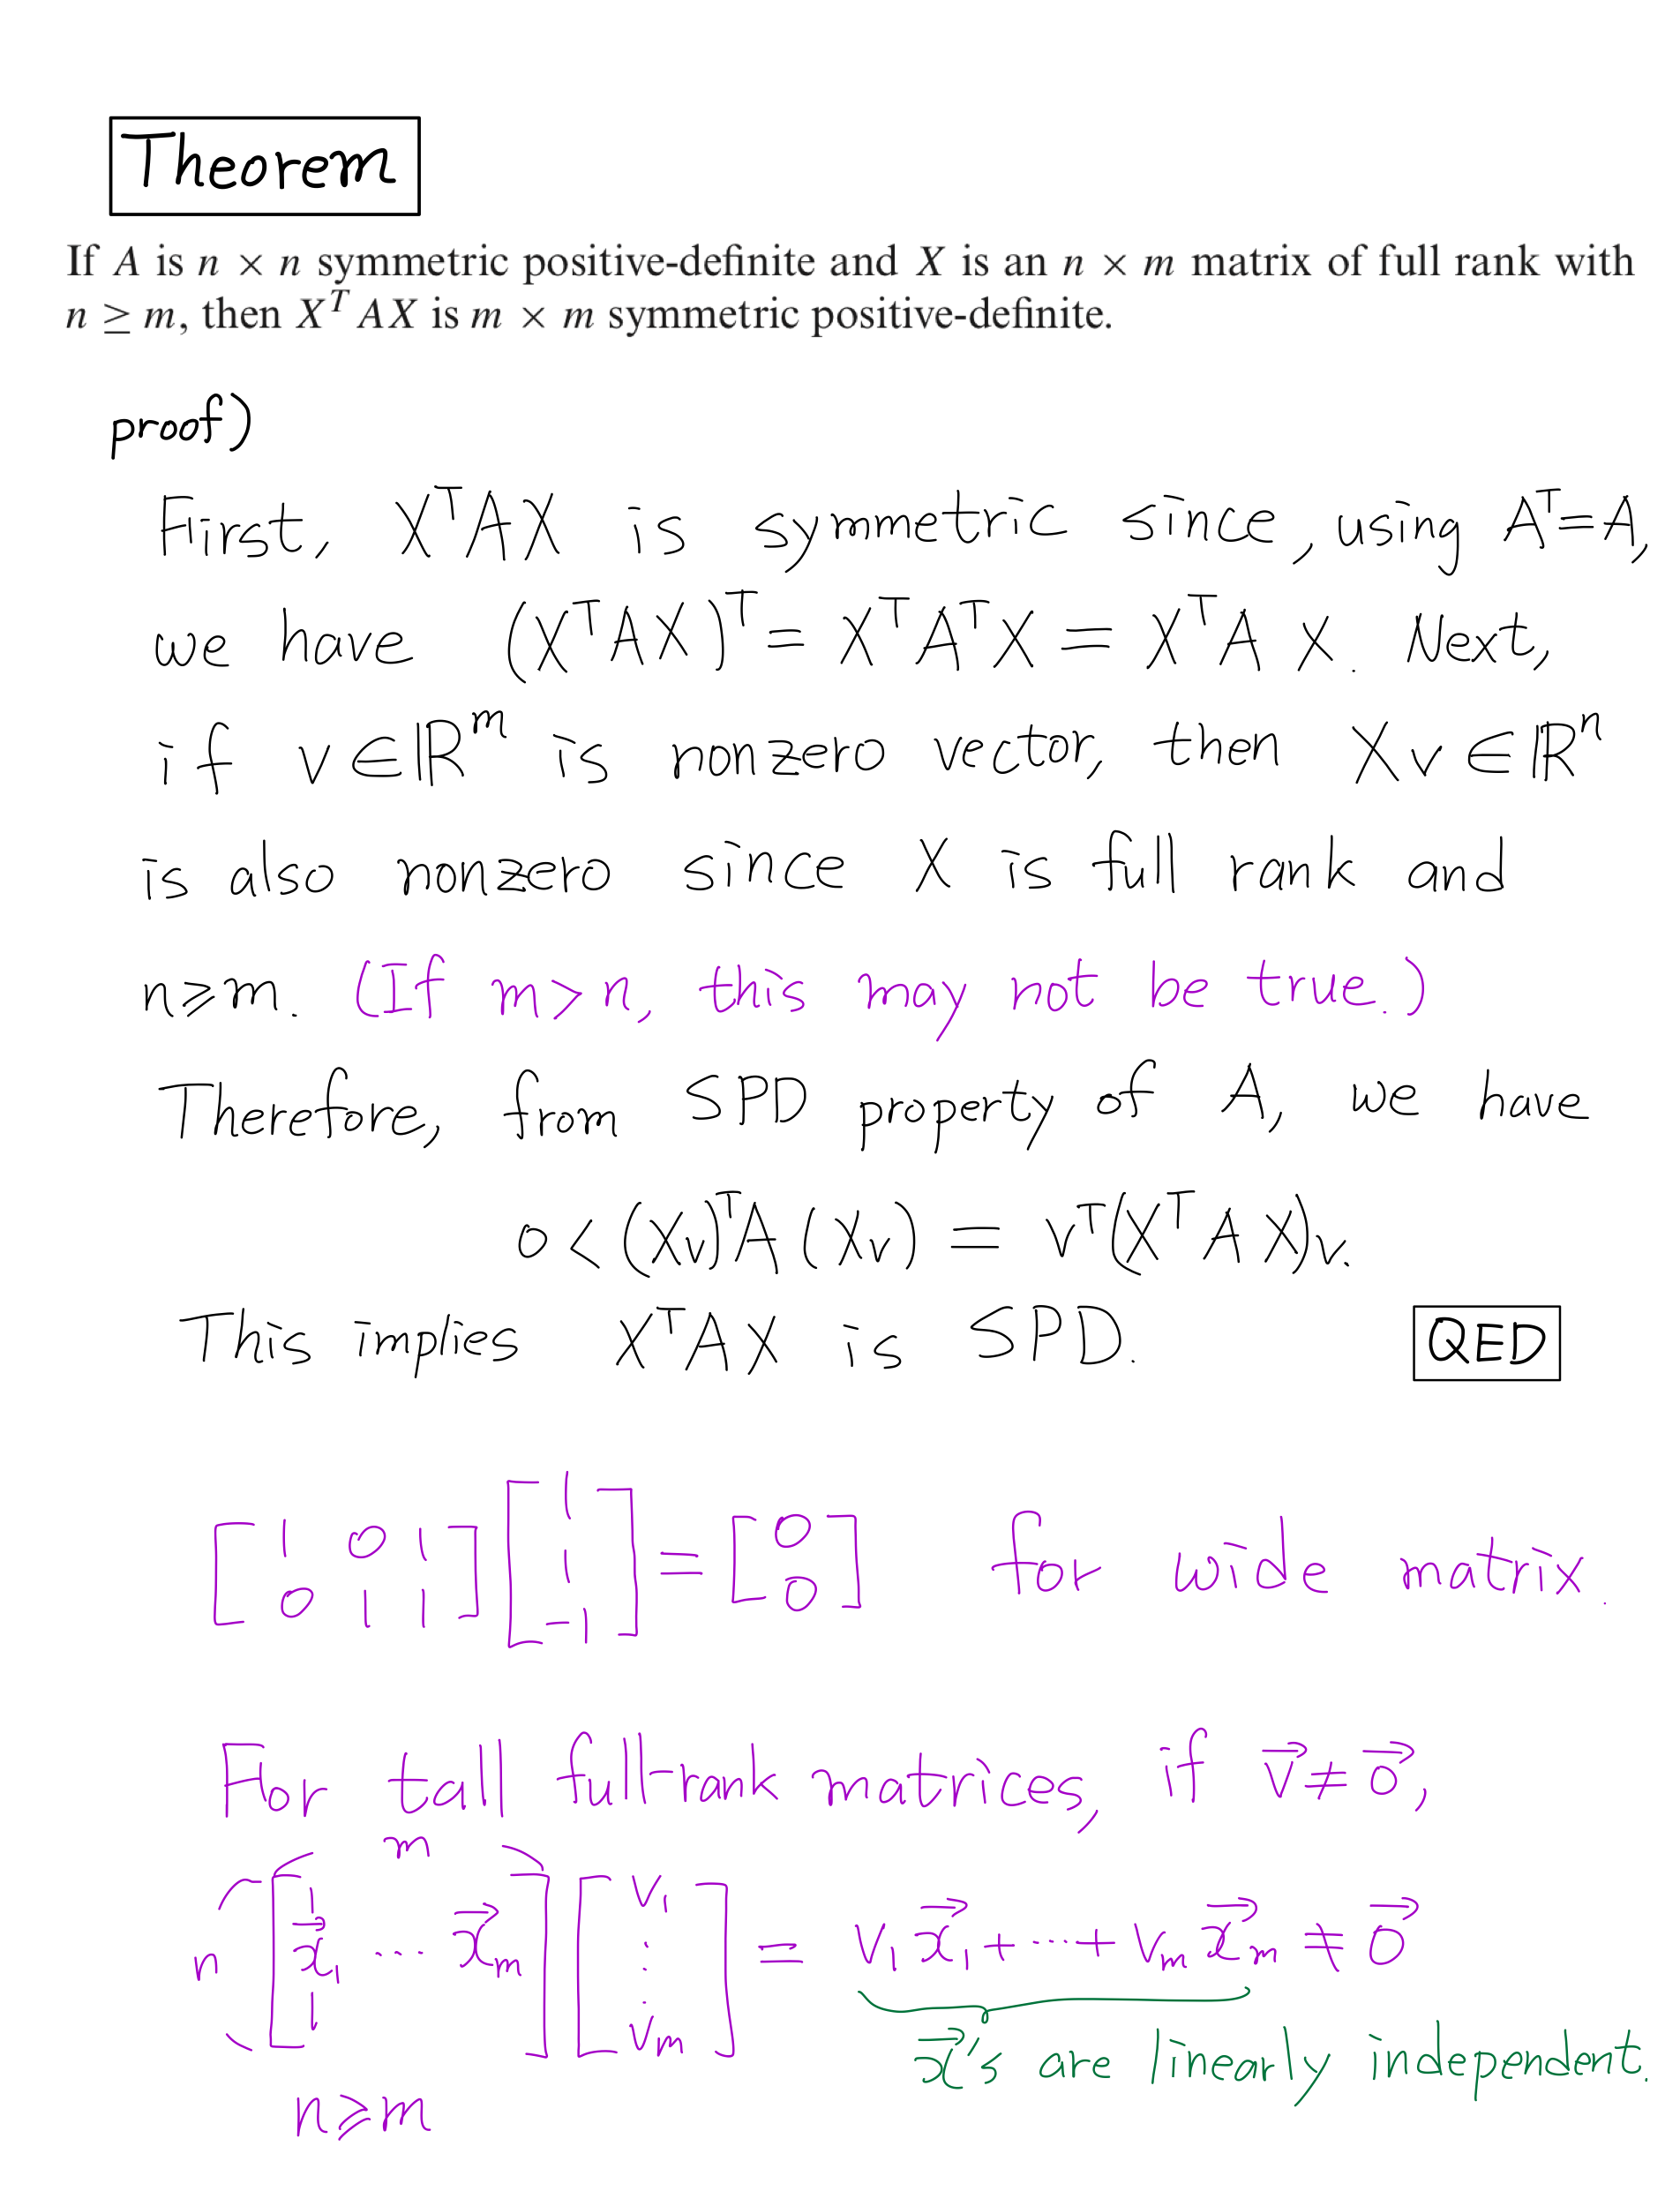 Theorem
If A is n × n symmetric positive-definite and X is an n × m matrix of full rank with
n ≥ m, then X^T AX is m × m symmetric positive-definite.
proof)
First, X^T AX is symmetric since, using A^T=A,
we have (X^T AX)^T = X^T A^T X = X^T A X. Next,
if v∈ℝ^m is nonzero vector, then Xv∈ℝ^n
is also nonzero since X is full rank and
n≥m. (If m>n, this may not be true.)
Therefore, from SPD property of A, we have
0 < (Xv)^T A (Xv) = v^T(X^T A X)v.
This implies X^T AX is SPD. QED
[1 0 1; 0 1 1] [1; 1; -1] = [0; 0] for wide matrix.
For tall full-rank matrices, if v⃗≠0⃗,
m
n [x⃗₁ ⋯ x⃗ₘ] [v₁ ⋮ vₘ] = v₁x⃗₁+⋯+vₘx⃗ₘ ≠ 0⃗
x⃗'s are linearly independent.
n≥m